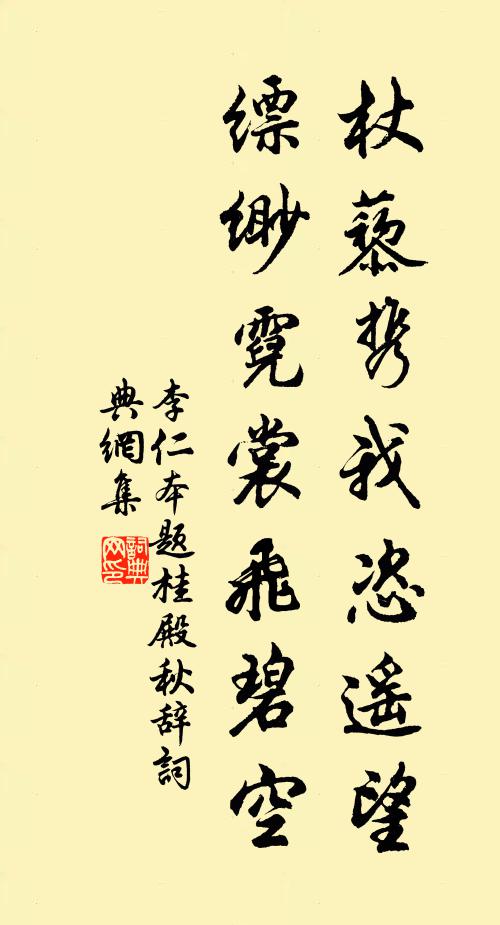 杖藜携我恣遥望
缥缈霓裳飛碧空
李仁本题桂殿秋辞詞
典網集
詞典
网印